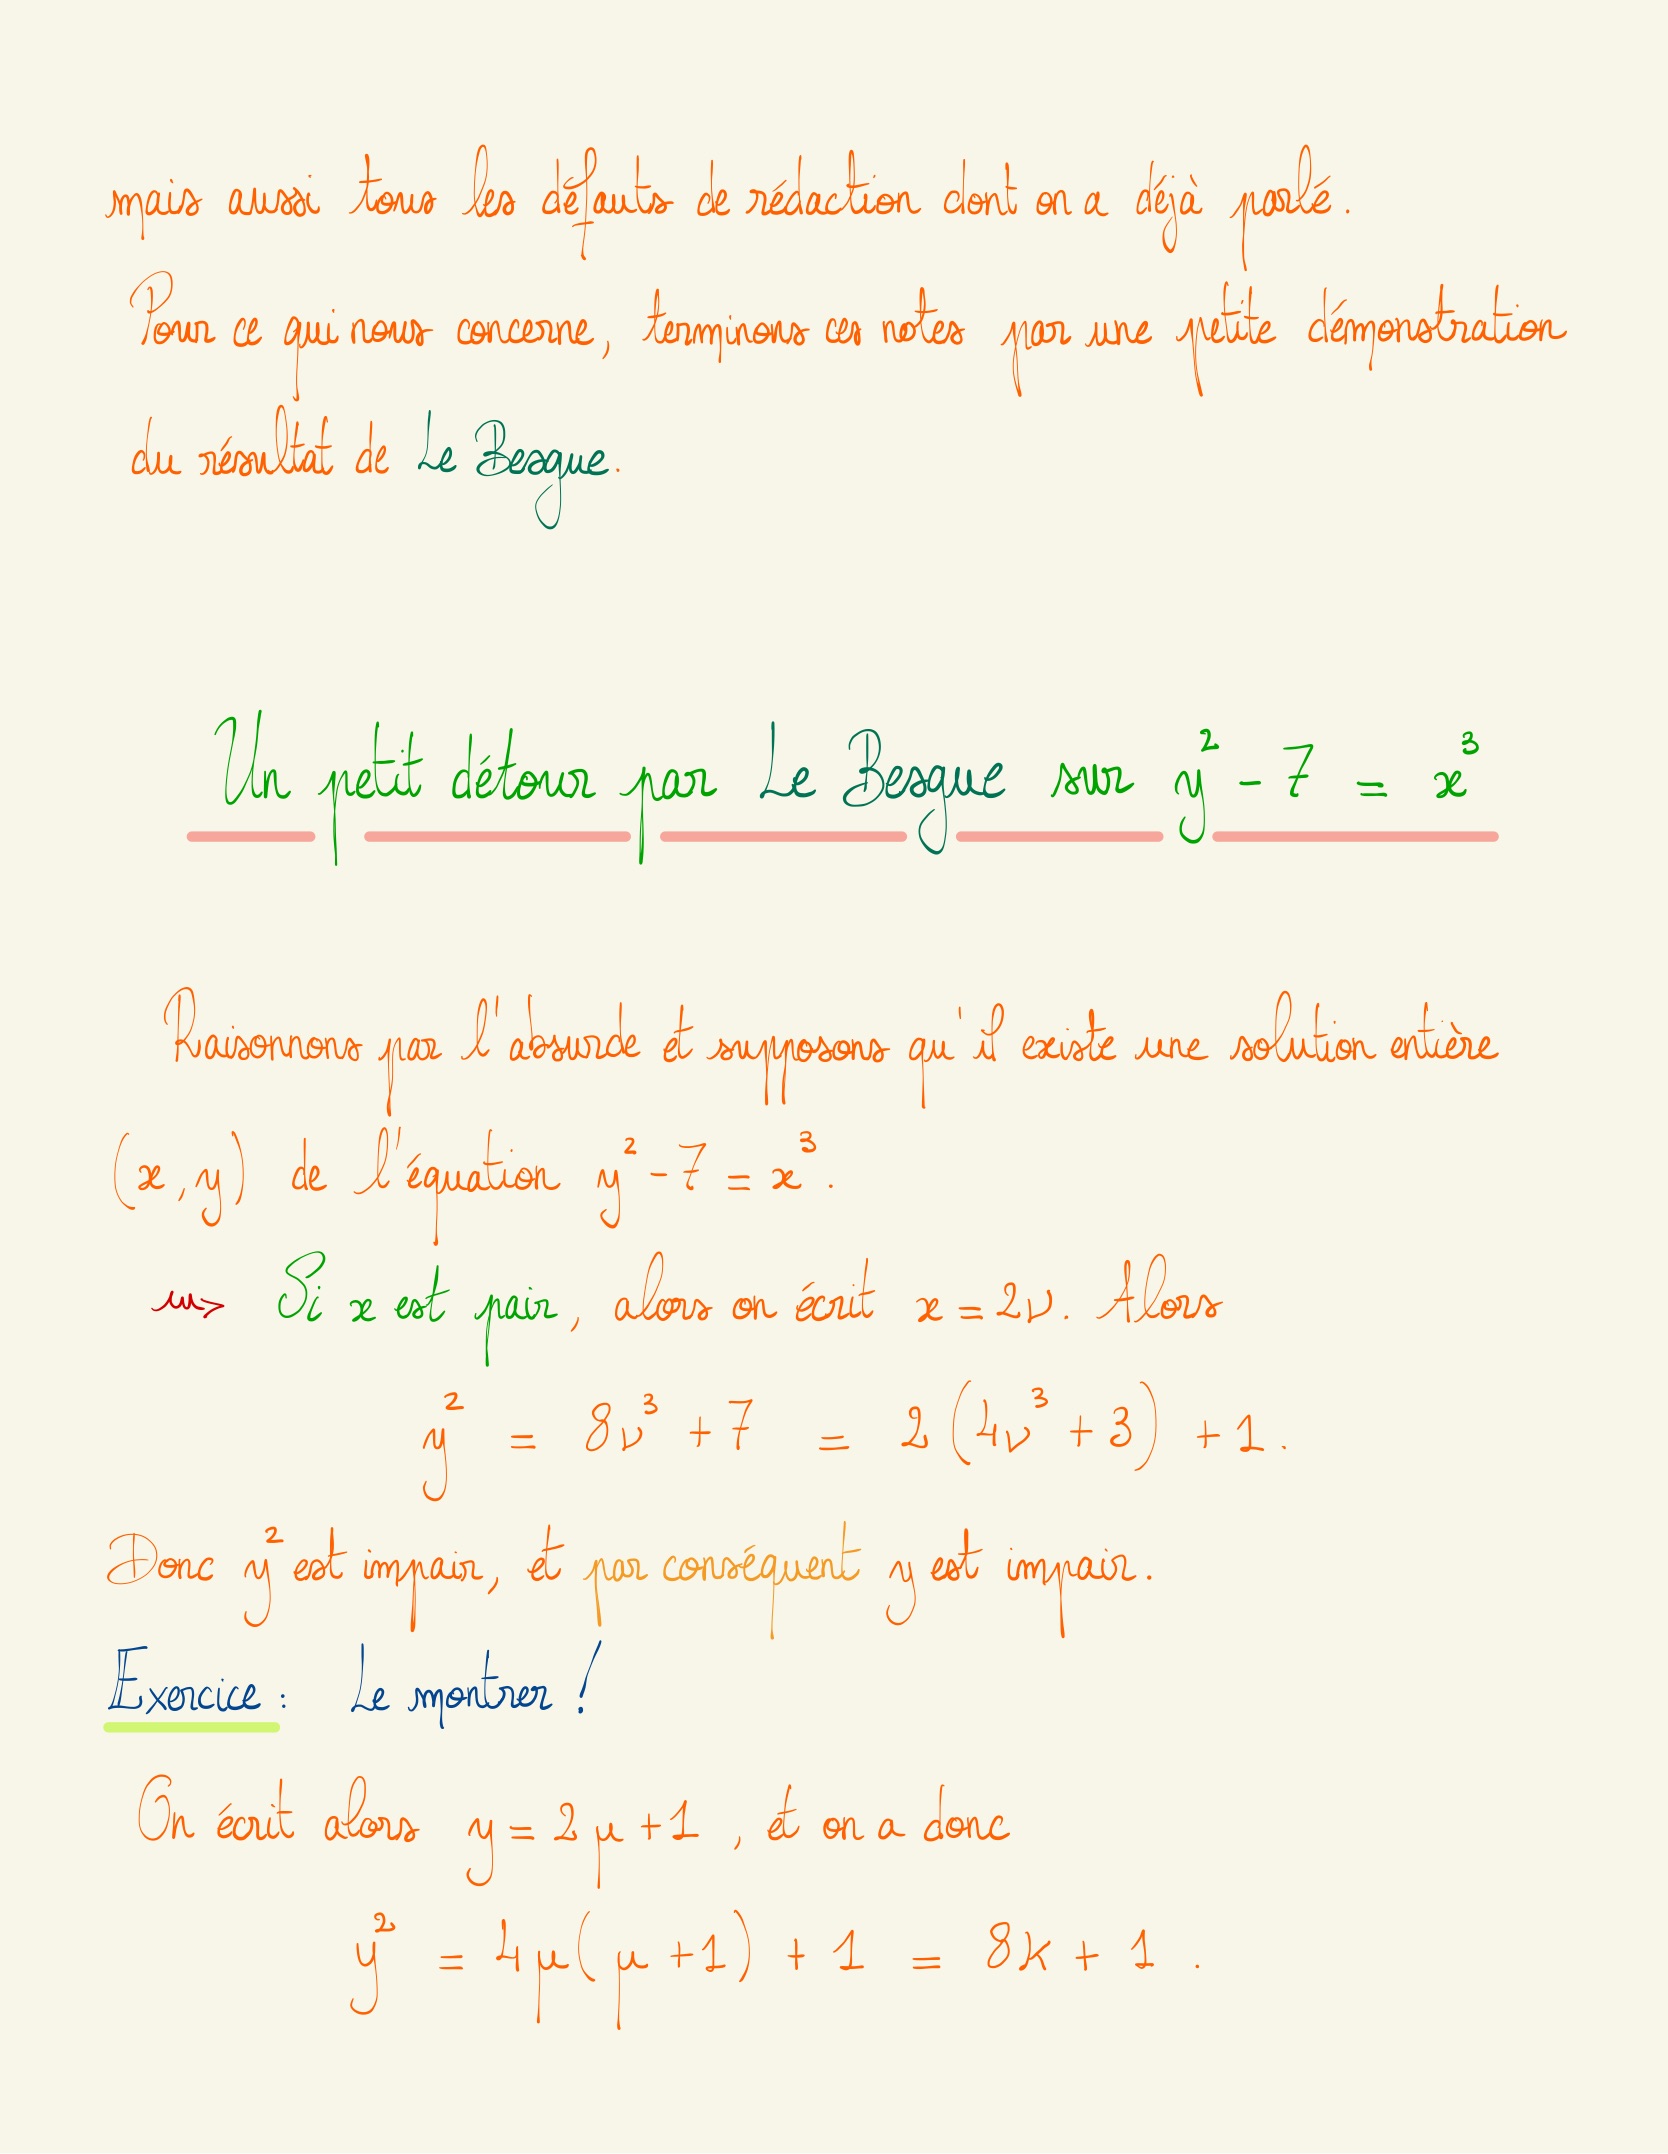 mais aussi tous les défauts de rédaction dont on a déjà parlé.
Pour ce qui nous concerne, terminons ces notes par une petite démonstration
du résultat de Le Besgue.
Un petit détour par Le Besgue sur y² - 7 = x³
Raisonnons par l'absurde et supposons qu'il existe une solution entière
(x, y) de l'équation y² - 7 = x³.
⇝ Si x est pair, alors on écrit x = 2ν. Alors
y² = 8ν³ + 7 = 2(4ν³ + 3) + 1.
Donc y² est impair, et par conséquent y est impair.
Exercice : Le montrer !
On écrit alors y = 2μ + 1, et on a donc
y² = 4μ(μ + 1) + 1 = 8k + 1.